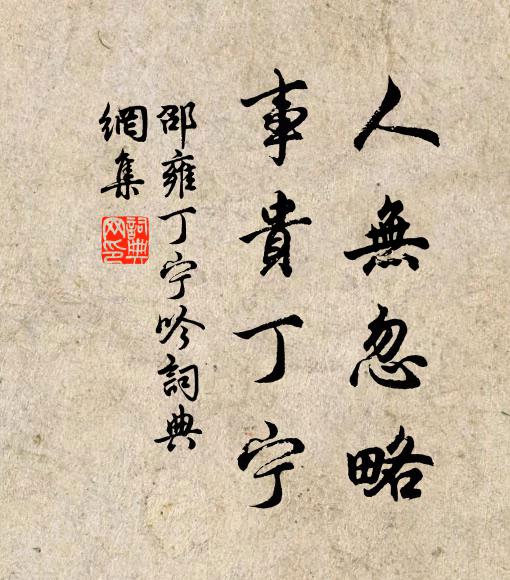 人無忽略
事貴丁宁
邵雍丁宁吟詞典
網集
詞典
网印